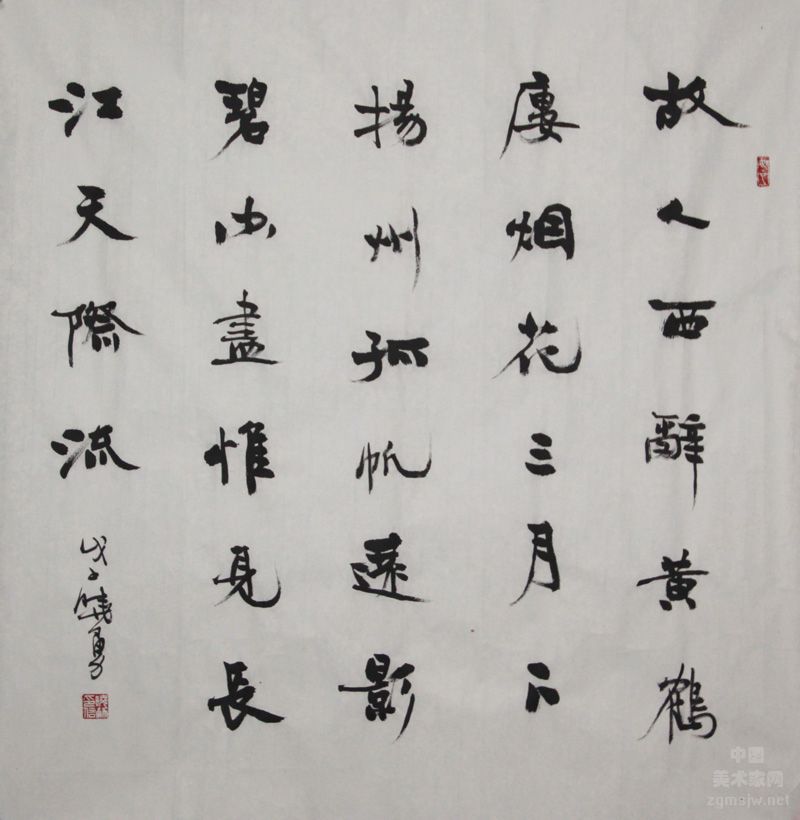 故人西辭黄鶴
廔烟花三月下
揚州孤帆遠影
碧山盡惟見長
江天際流
戊子曉勇
中国
美术家网
zgmsjw.net